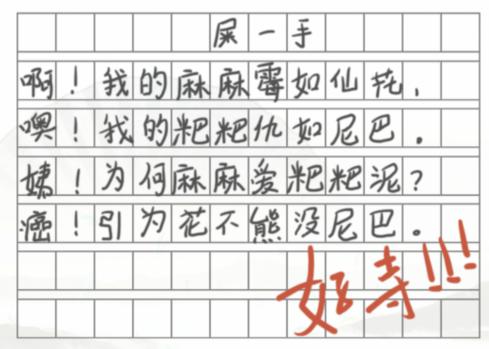 屎一手
啊！我的麻麻霉如仙花，
噢！我的粑粑仇如尼巴。
姨！为何麻麻爱粑粑泥？
癌！引为花不熊没尼巴。
好寺!!!